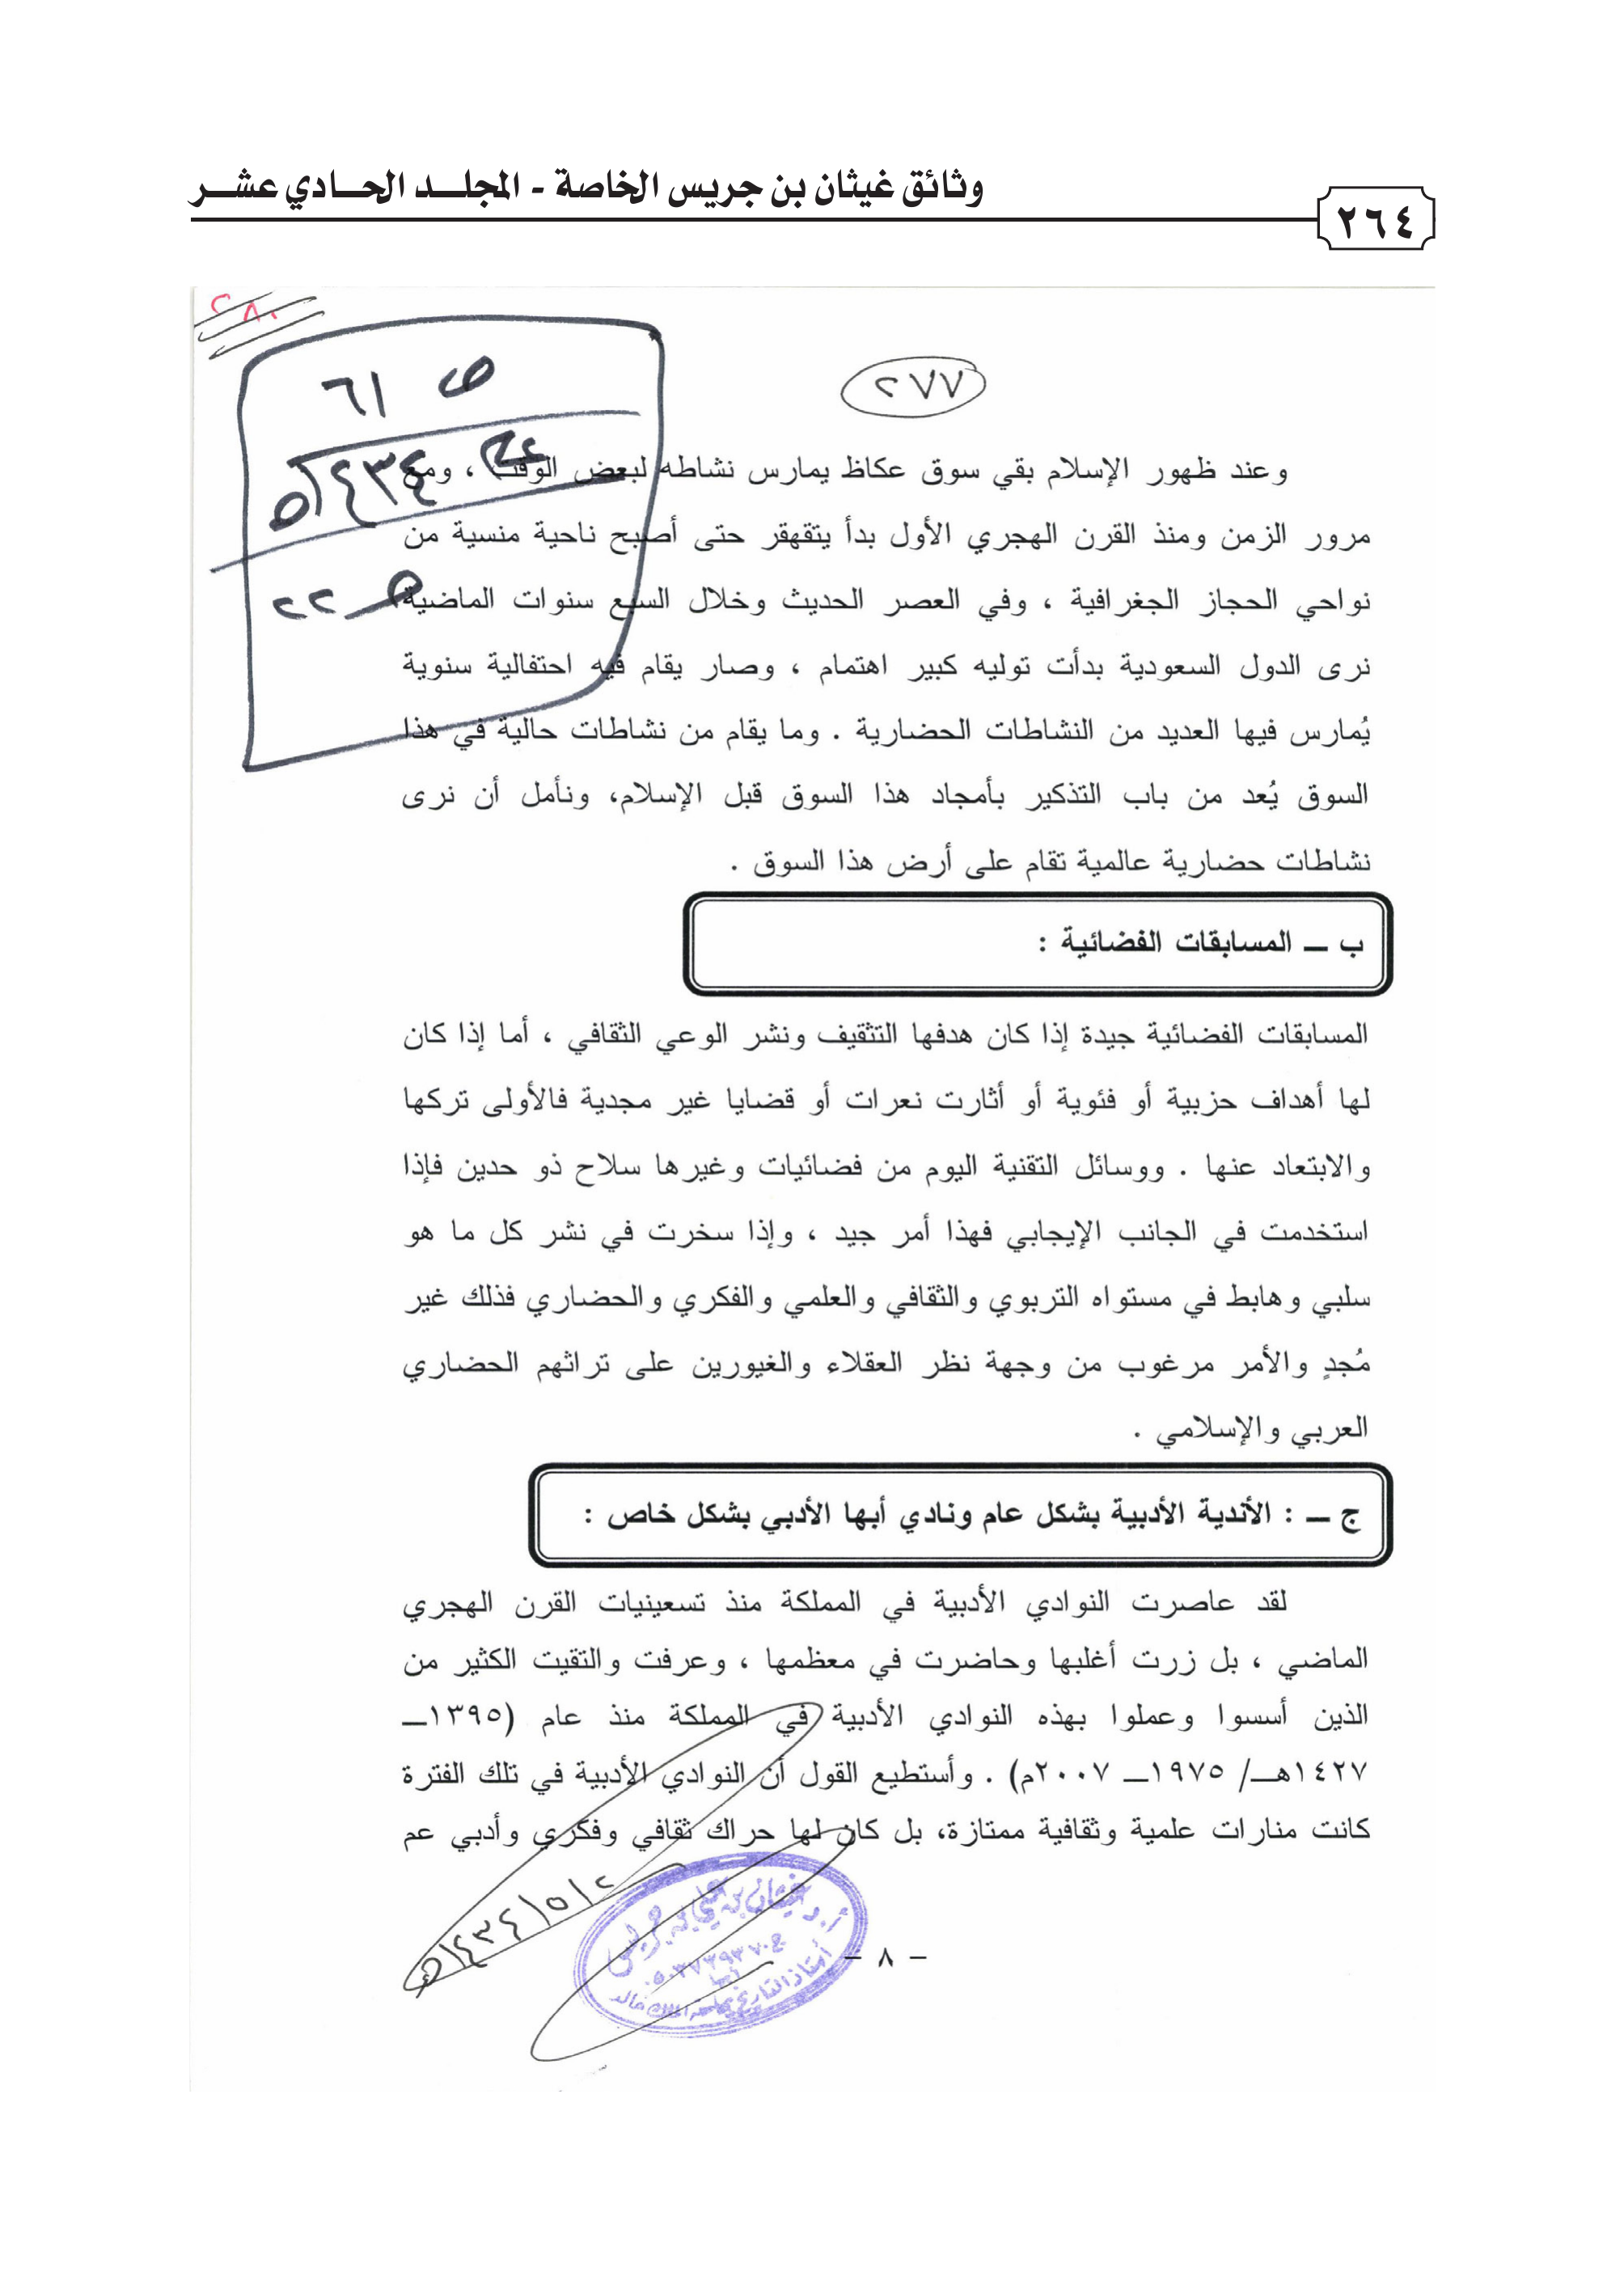 وثائق غيثان بن جريس الخاصة - المجلد الحادي عشر
٢٦٤
٢٧٧
ص ٦١
١٤٣٤هـ
ص ٢٢
وعند ظهور الإسلام بقي سوق عكاظ يمارس نشاطه لبعض الوقت ، ومع
مرور الزمن ومنذ القرن الهجري الأول بدأ يتقهقر حتى أصبح ناحية منسية من
نواحي الحجاز الجغرافية ، وفي العصر الحديث وخلال السبع سنوات الماضية
نرى الدول السعودية بدأت توليه كبير اهتمام ، وصار يقام فيه احتفالية سنوية
يُمارس فيها العديد من النشاطات الحضارية . وما يقام من نشاطات حالية في هذا
السوق يُعد من باب التذكير بأمجاد هذا السوق قبل الإسلام، ونأمل أن نرى
نشاطات حضارية عالمية تقام على أرض هذا السوق .
ب ـ المسابقات الفضائية :
المسابقات الفضائية جيدة إذا كان هدفها التثقيف ونشر الوعي الثقافي ، أما إذا كان
لها أهداف حزبية أو فئوية أو أثارت نعرات أو قضايا غير مجدية فالأولى تركها
والابتعاد عنها . ووسائل التقنية اليوم من فضائيات وغيرها سلاح ذو حدين فإذا
استخدمت في الجانب الإيجابي فهذا أمر جيد ، وإذا سخرت في نشر كل ما هو
سلبي وهابط في مستواه التربوي والثقافي والعلمي والفكري والحضاري فذلك غير
مُجدٍ والأمر مرغوب من وجهة نظر العقلاء والغيورين على تراثهم الحضاري
العربي والإسلامي .
ج ـ : الأندية الأدبية بشكل عام ونادي أبها الأدبي بشكل خاص :
لقد عاصرت النوادي الأدبية في المملكة منذ تسعينيات القرن الهجري
الماضي ، بل زرت أغلبها وحاضرت في معظمها ، وعرفت والتقيت الكثير من
الذين أسسوا وعملوا بهذه النوادي الأدبية في المملكة منذ عام (١٣٩٥ـ
١٤٢٧هـ/ ١٩٧٥ـ ٢٠٠٧م) . وأستطيع القول أن النوادي الأدبية في تلك الفترة
كانت منارات علمية وثقافية ممتازة، بل كان لها حراك ثقافي وفكري وأدبي عم
٢/٥/١٤٣٤هـ
أ.د غيثان بن علي بن جريس
أبها
أستاذ التاريخ بجامعة الملك خالد
- ٨ -